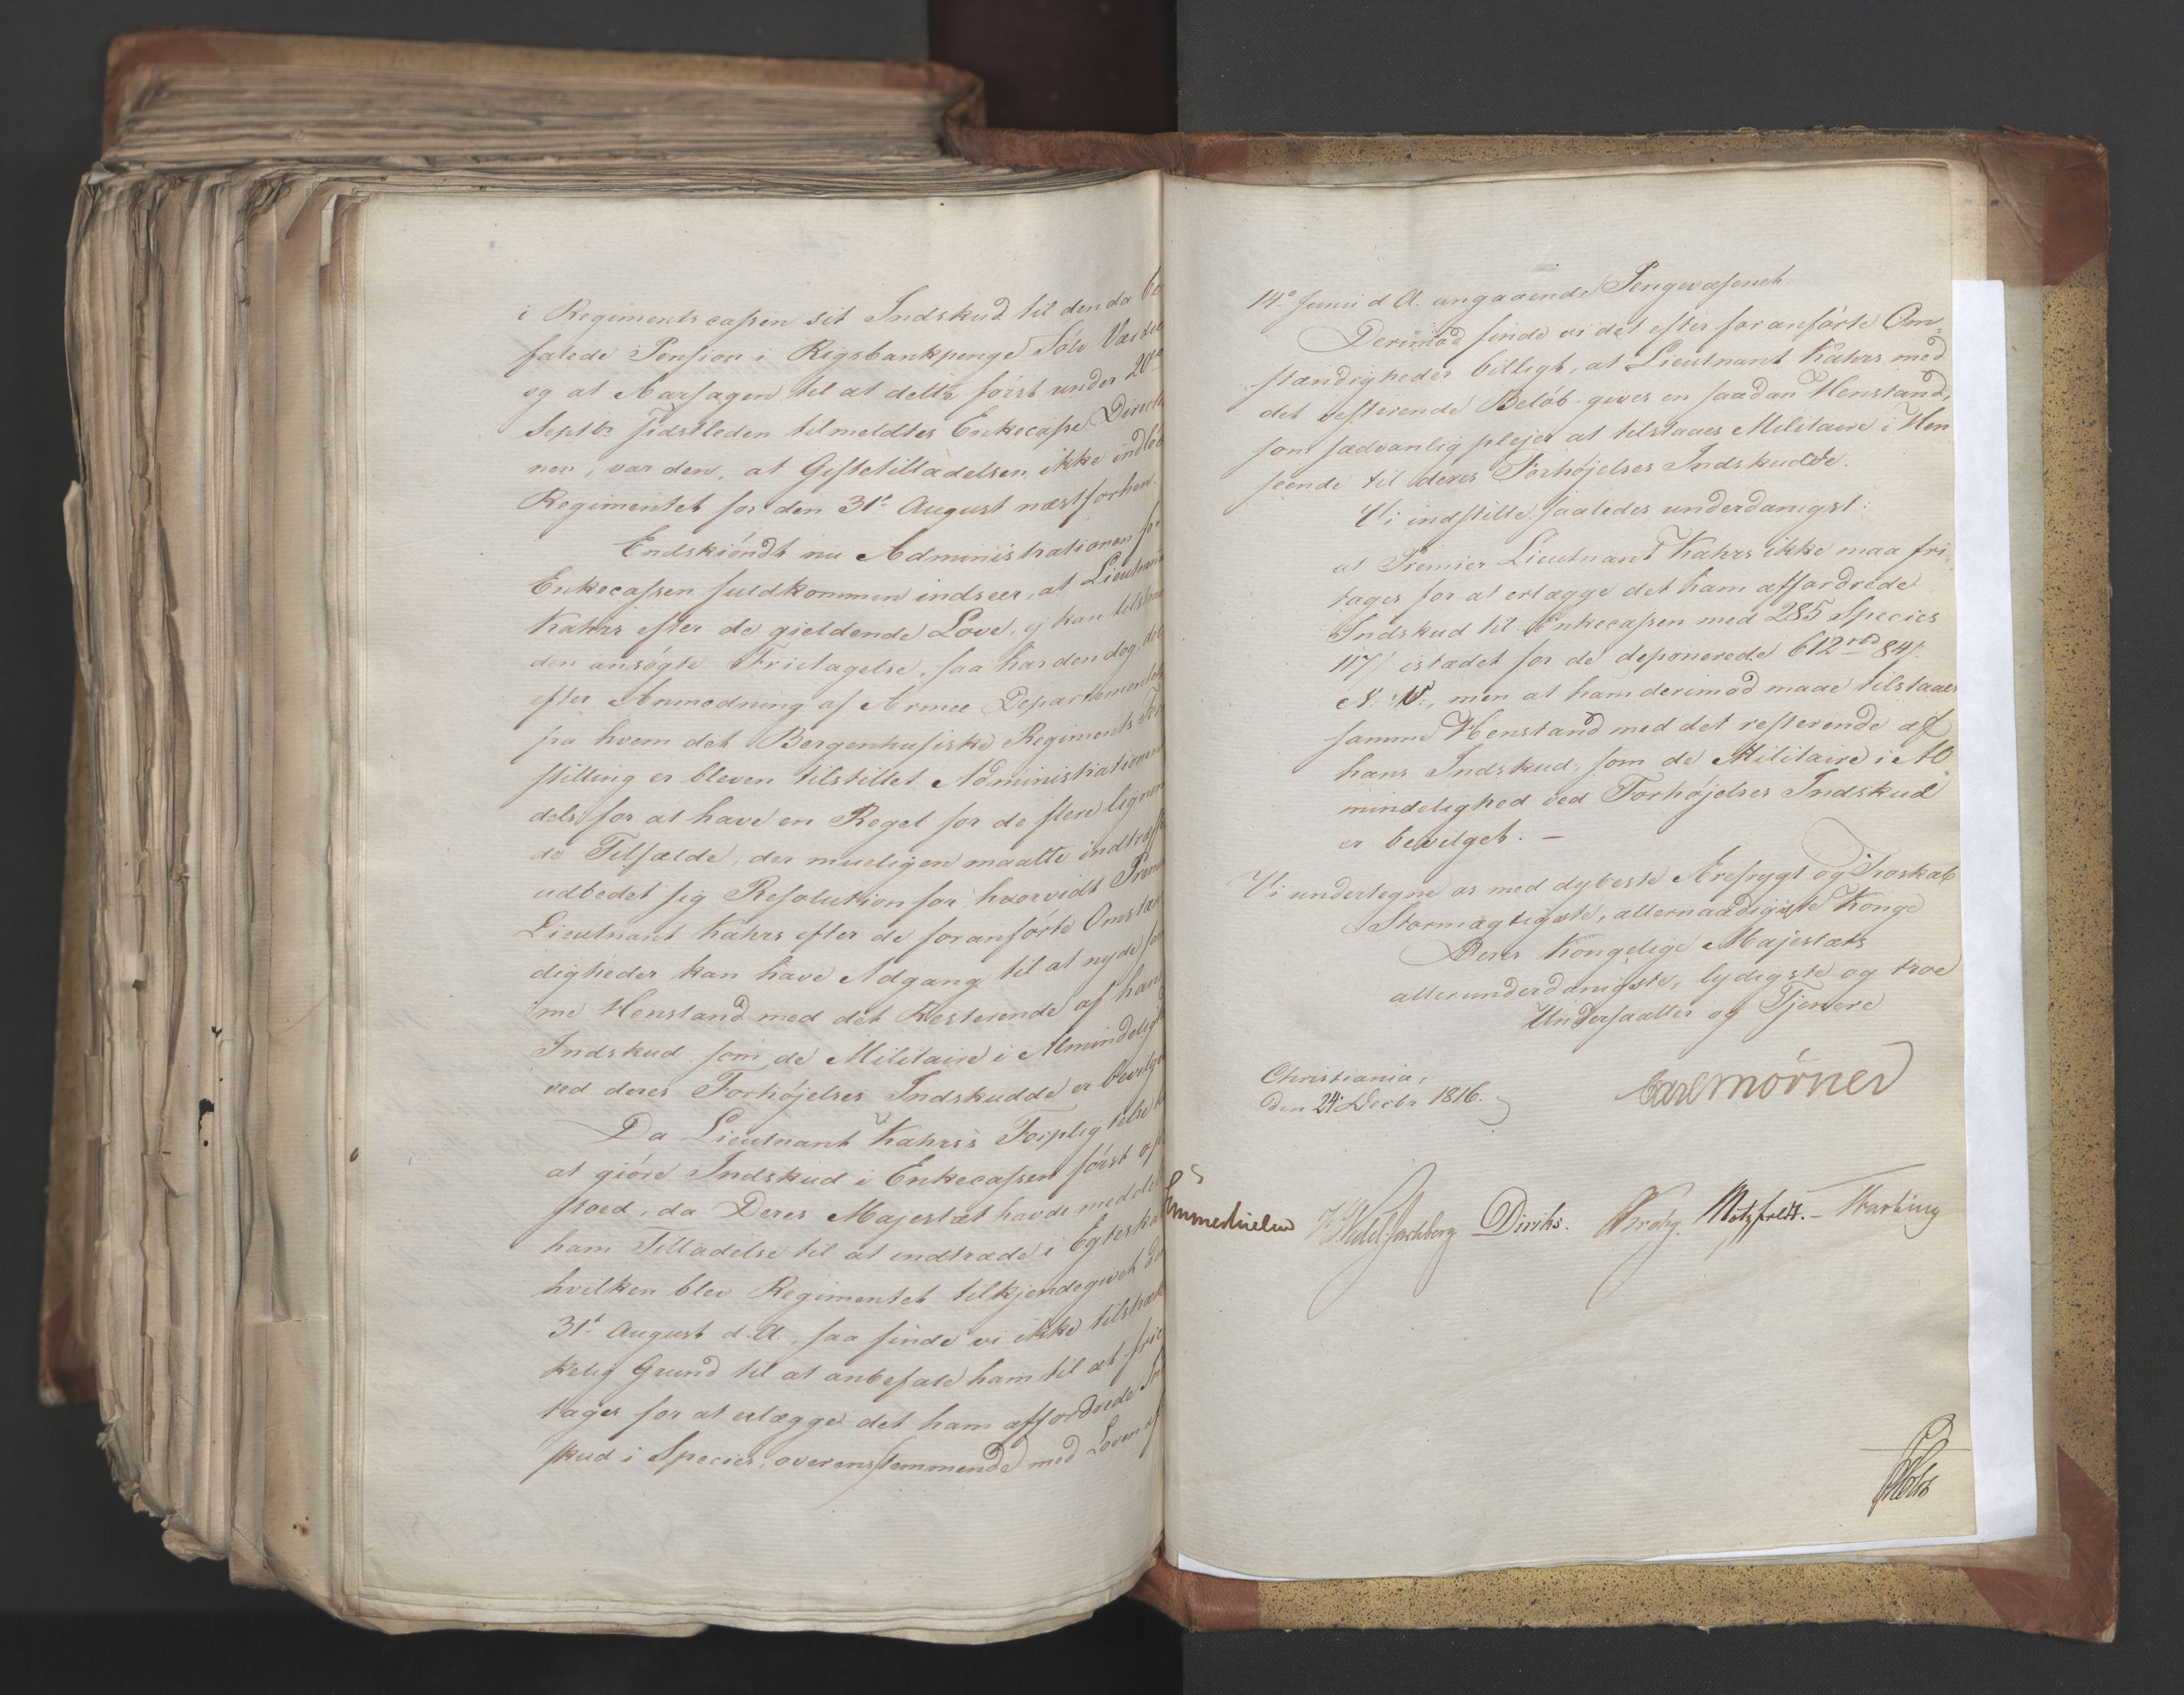 i Regimentscassen sit Indskud til den da be
falede Pension i Rigsbankpenge Sølv Værdie
og at Aarsagen til at dette først under 20de
Septbr sidstleden tilmeldtes Enkecasse Directio
nen, var den, at Giftetilladelsen ikke indløb
Regimentet før den 31te August næstforhen.
Endskiöndt nu Administrationen for
Enkecassen fuldkommen indseer, at Lieutnant
Kahrs efter de gieldende Love, ej kan tilstaaes
den ansøgte Frietagelse, saa har den dog, dels
efter Anmodning af Armee Departementet
fra hvem det Bergenhusiske Regiments Fore
stilling er bleven tilstillet Administrationen
dels for at have en Regel for de flere lignen
de Tilfælde, der mueligen maatte indtræffe
udbedet sig Resolution for, hvorvidt Premier
Lieutnant Kahrs efter de foranførte Omstæn
digheder kan have Adgang til at nyde sam
me Henstand med det Resterende af hans
Indskud som de Militaire i Almindelighed
ved deres Forhøjelses Indskudde er bevilget
Da Lieutnant Kahrs's Forpligtelse til
at giöre Indskud i Enkecassen først op
stoed, da Deres Majestæt havde meddelt
ham Tilladelse til at indtræde i Egteskab
hvilken blev Regimentet tilkjendegivet den
31te August d. A., saa finde vi ikke tilstræk
kelig Grund til at anbefale ham til at frie
tages for at erlægge det ham affordrede Ind
skud i Species, overensstemmende med Loven af
14de Junii d A. angaaende Pengevæsenet.
Derimod finde vi det efter foranførte Om-
stændigheder billigt, at Lieutnant Kahrs med
det resterende Beløb gives en saadan Henstand,
som sædvanlig plejer at tilstaaes Militaire i Hen
seende til deres Forhøjelses Indskudde.
Vi indstille saaledes underdanigst:
at Premier Lieutnant Kahrs ikke maa fri
tages for at erlægge det ham affordrede
Indskud til Enkecassen med 285 Species
117 s istædet for de deponerede 612 rbd 84 s
N. V., men at ham derimod maae tilstaaes
samme Henstand med det resterende af
hans Indskud, som de Militaire i Al
mindelighed ved Forhøjelses Indskud
er bevilget. —
Vi undertegne os med dybeste Ærefrygt og Troskab
Stormægtigste, allernaadigste Konge
Deres Kongelige Majestæts
allerunderdanigste, lydigste og troe
Undersaatter og Tjenere
Christiania,
den 24 Decbr 1816.
Carl Mörner
Sommerhielm H Wedel Jarlsberg Diriks. Krohg. Motzfeldt. – Harbing
Holst